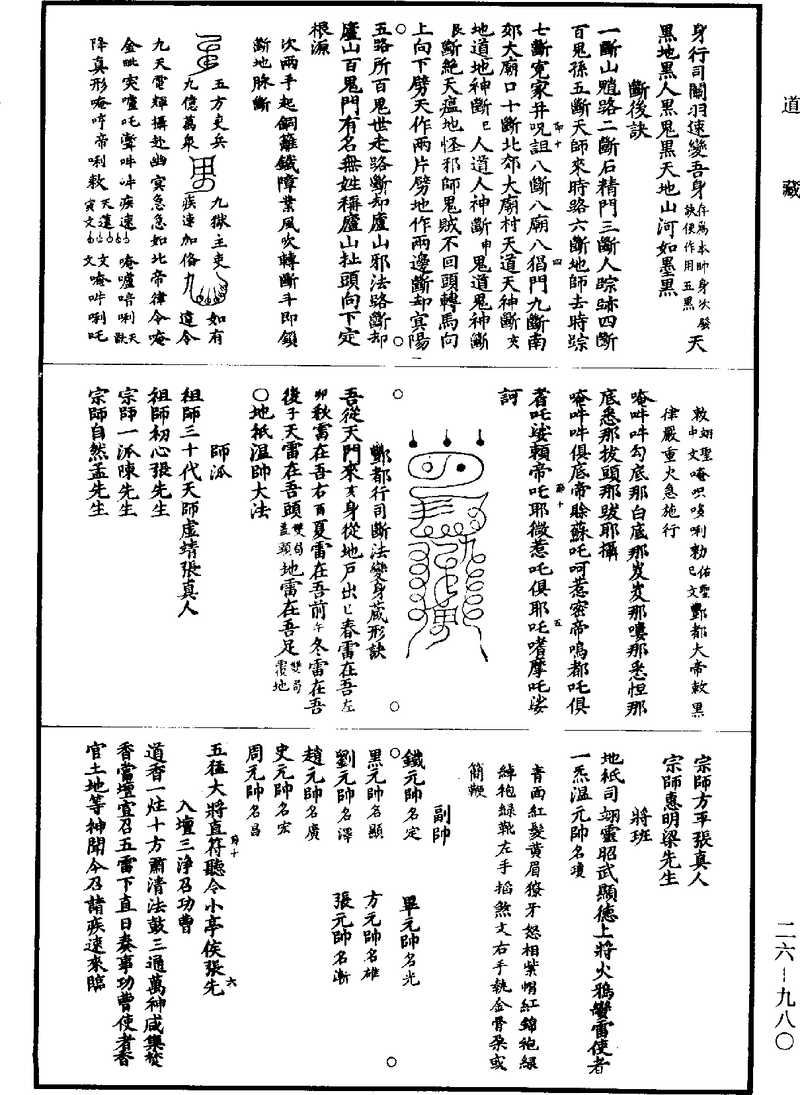 道藏
身行司關羽速變吾身存為本帥身次發訣便作用五黑天
黑地黑人黑鬼黑天地山河如墨黑
斷後訣
一斷山魈路二斷石精門三斷人踪跡四斷
百鬼孫五斷天師來時路六斷地師去時踪
七斷寃家并呪詛八斷八廟八猖門九斷南
郊大廟口十斷北郊大廟村天道天神斷亥
地道地神斷巳人道人神斷申鬼道鬼神斷
艮斷絕天瘟地怪邪師鬼賊不回頭轉馬向
上向下劈天作兩片劈地作兩邊斷却寅陽
五路所百鬼世走路斷却廬山邪法路斷却
廬山百鬼門有名無姓稱廬山扯頭向下定
根源
次兩手起銅籬鐵障業風吹轉斷斗即鎖
斷地脉斷
五方吏兵 九獄主吏 如有
九億萬衆 疾速加俻 違令
九天電輝攝赴幽寅急急如北帝律令唵
金吡突嚧吒𤙖吽吽疾速 唵嚧唔唎天猷
降真形唵哼帝唎敕天蓬寅文 文 唵吽唎吒
敕翊聖申文唵唄哆唎勑佑聖巳文酆都大帝敕黑
律嚴重火急施行
唵吽吽勾底那白底那岌岌那嘍那悉怛那
底悉那拔頭那跋耶攝
唵吽吽俱底帝睒蘇吒呵惹密帝嗚都吒俱
耆吒娑賴帝吒耶微惹吒俱耶吒嗜摩吒娑
訶
酆都行司斷法變身藏形訣
吾從天門來亥身從地戶出匕春雷在吾左
卯秋雷在吾右酉夏雷在吾前午冬雷在吾
後子天雷在吾頭雙局蓋頭地雷在吾足雙局覆地
〇地祇温帥大法
師派
祖師三十代天師虛靖張真人
祖師初心張先生
宗師一派陳先生
宗師自然孟先生
宗師方平張真人
宗師惠明梁先生
將班
地祇司翊靈昭武顯德上將火鴉蠻雷使者
一炁温元帥名瓊
青面紅髮黃眉獠牙怒相紫帽紅錦袍綠
綽袍綠靴左手掐煞文右手執金骨朶或
簡鞭
副帥
鐵元帥名定 畢元帥名光
黑元帥名顯 方元帥名雄
劉元帥名澤 張元帥名漸
趙元帥名廣
史元帥名宏
周元帥名昌
五猛大將直符聽令小亭侯張先
入壇三淨召功曹
道香一炷十方肅清法鼓三通萬神咸集焚
香當壇宣召五雷下直日奏事功曹使者香
官土地等神聞今召請疾速來臨
二六—九八〇